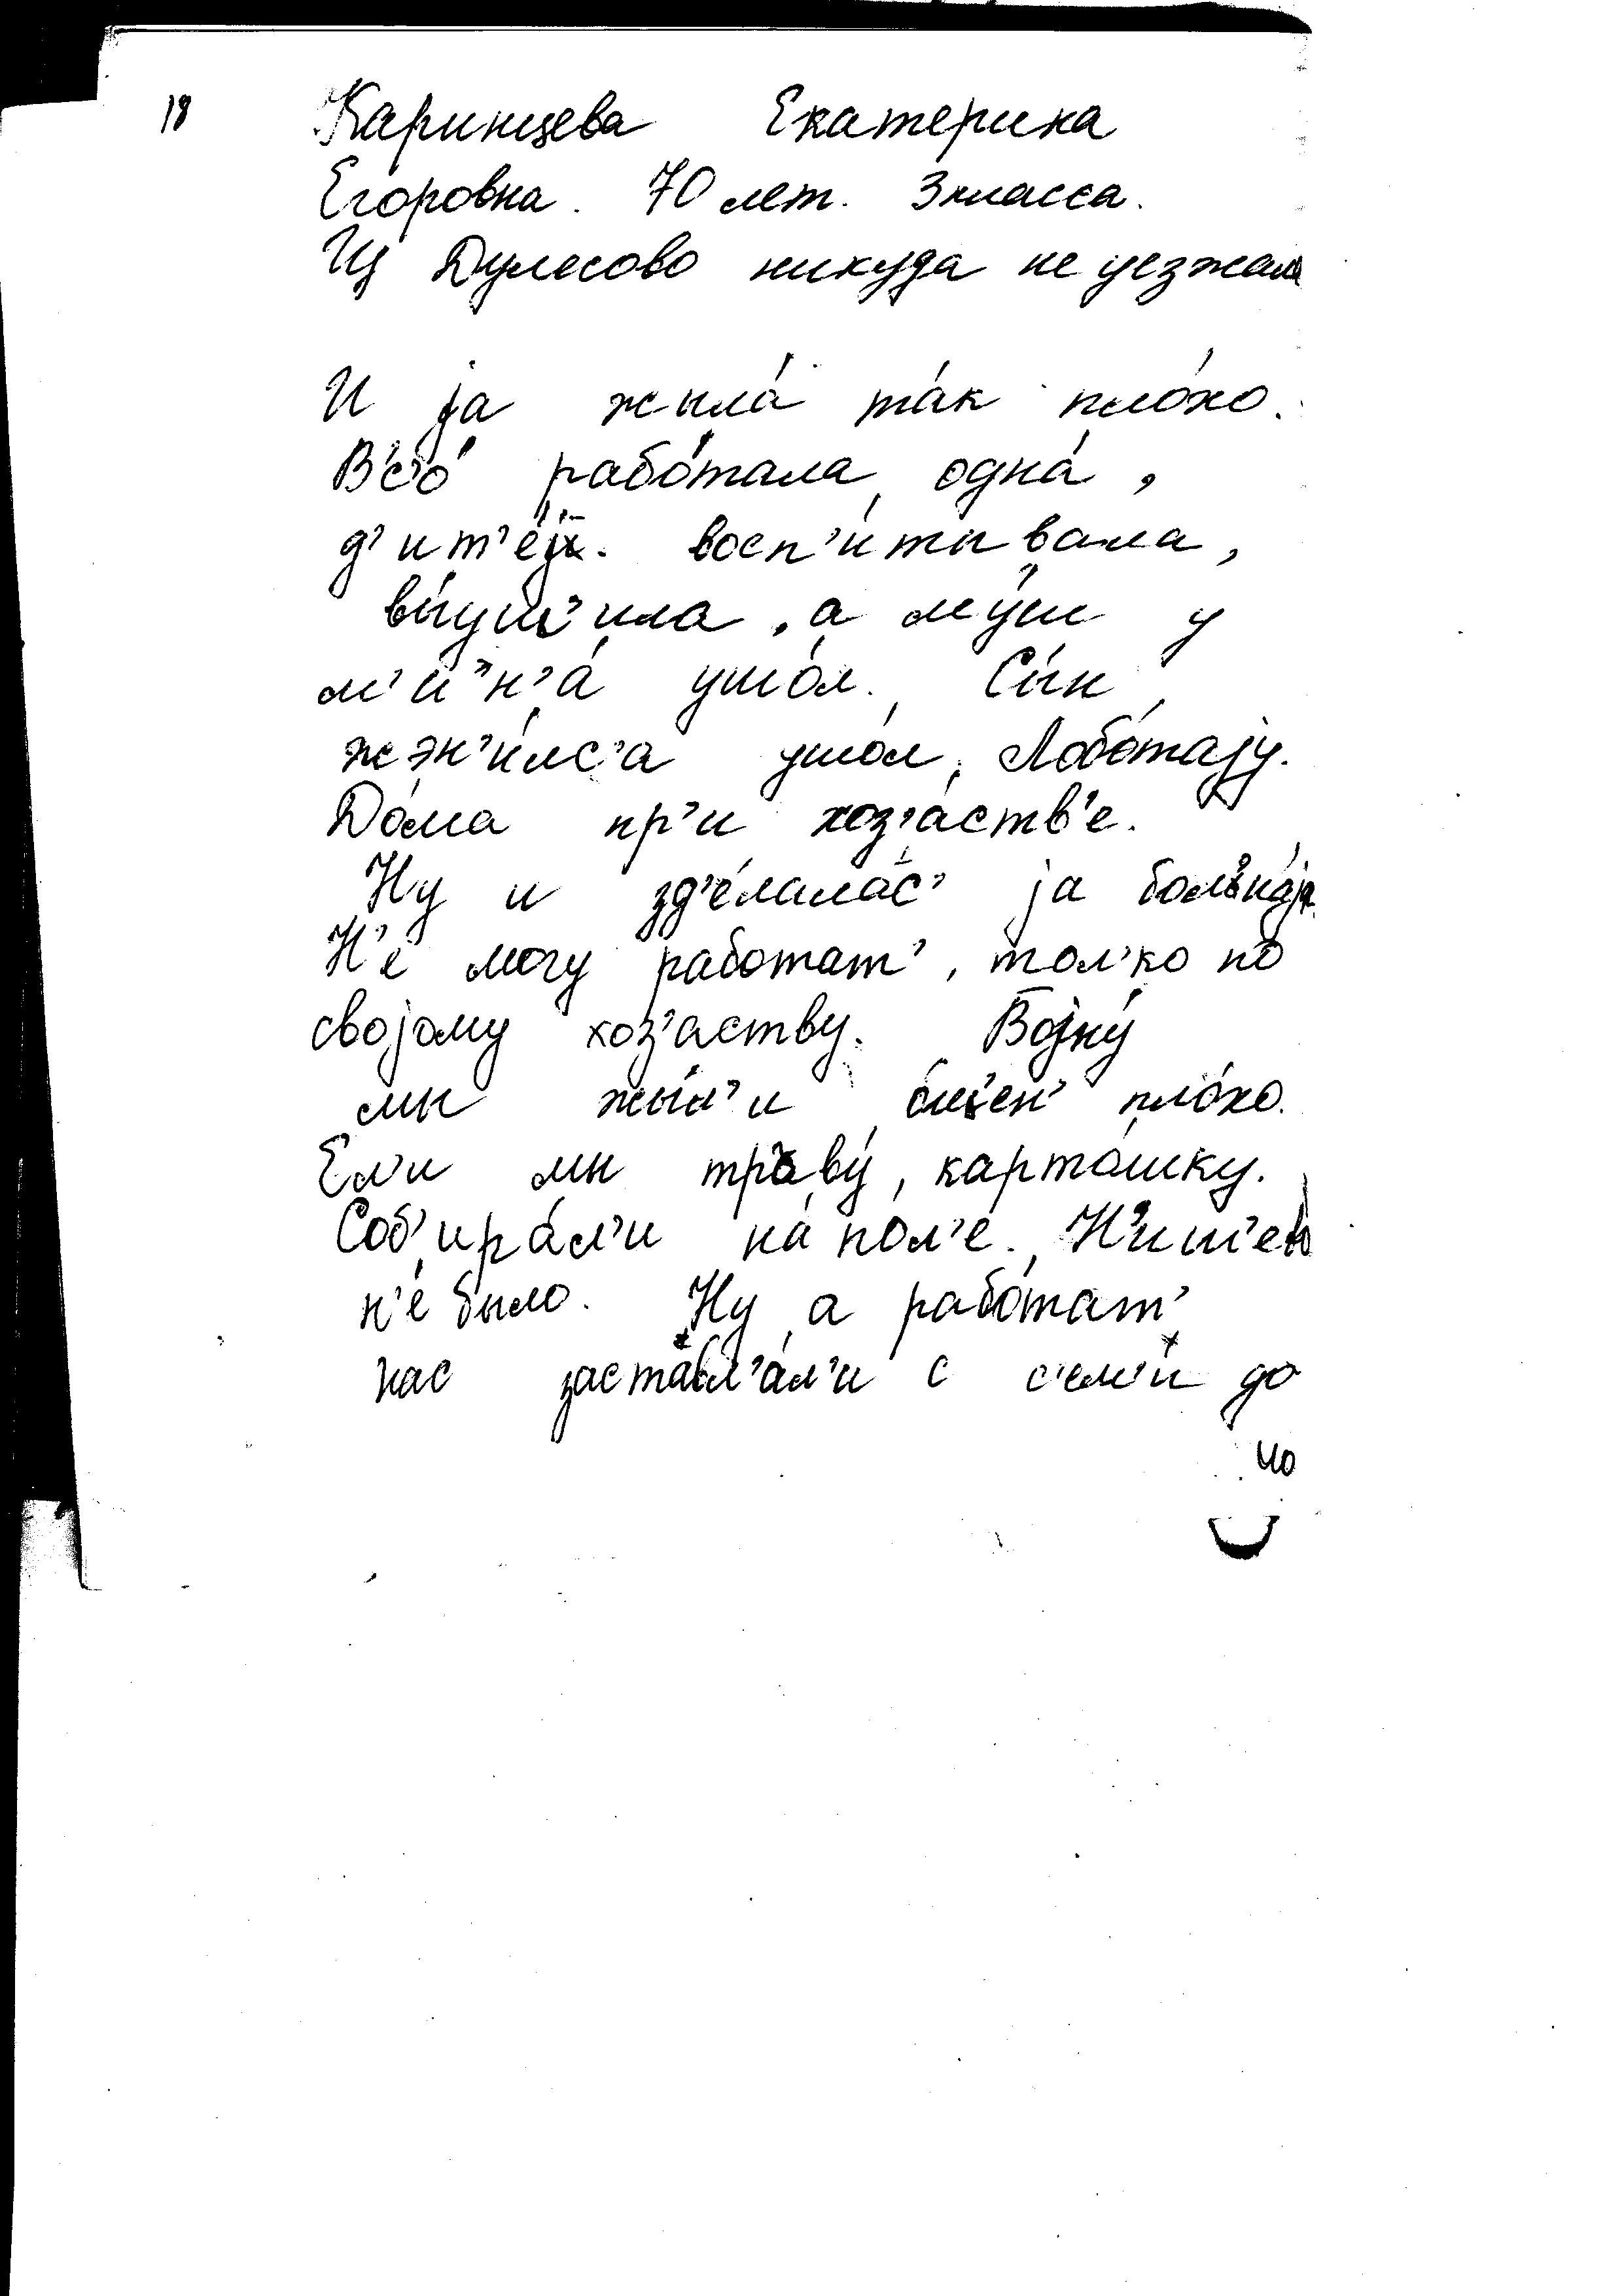 18 Каринцева Екатерина
Егоровна. 70 лет. 3 класса.
Из Дулесово никуда не уезжала
И jа жыла́ та́к пло́хо.
В'с'о́ рабо́тала одна́,
д'ит'е́j. восп'и́тывала,
вы́уш'ила, а му́ш у
м'ин'а́ ушо́л. Сы́н
жэн'и́лс'а ушо́л. Лобо́таjу.
До́ма пр'и хоз'а́ств'е.
Ну и зд'е́лалас' jа бол'на́jа
Н'е могу работат', тол'ко по
своjому хоз'аству. Воjну́
мы жы́л'и о́ш'ен' пло́хо.
Ел'и мы траву́, карто́шку.
Соб'ира́л'и на пол'е. Н'иш'ево
н'е́ было. Ну а рабо́тат'
нас заставл'а́л'и с с'ем'и́ до
40